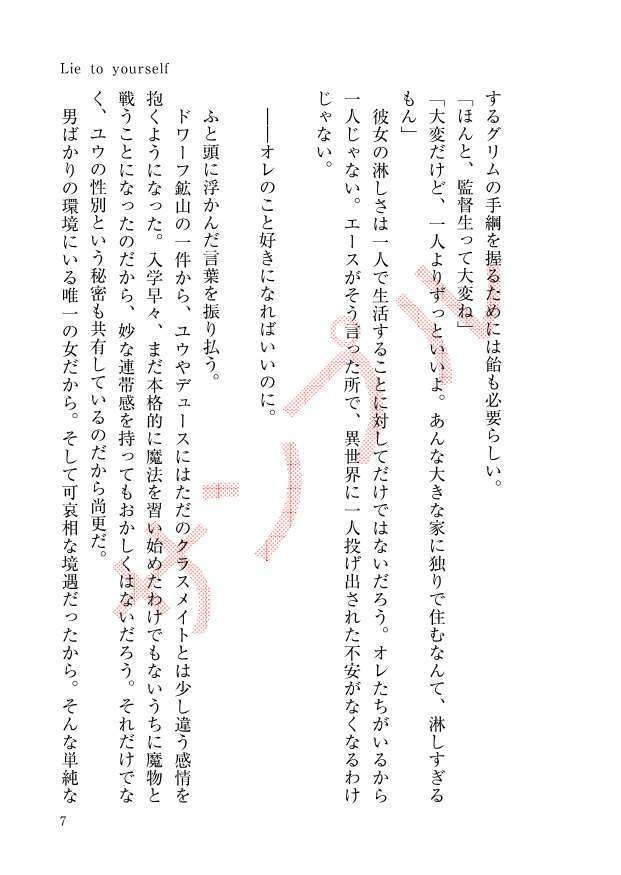 Lie to yourself
するグリムの手綱を握るためには飴も必要らしい。
「ほんと、監督生って大変ね」
「大変だけど、一人よりずっといいよ。あんな大きな家に独りで住むなんて、淋しすぎる
もん」
彼女の淋しさは一人で生活することに対してだけではないだろう。オレたちがいるから
一人じゃない。エースがそう言った所で、異世界に一人投げ出された不安がなくなるわけ
じゃない。
――オレのこと好きになればいいのに。
ふと頭に浮かんだ言葉を振り払う。
ドワーフ鉱山の一件から、ユウやデュースにはただのクラスメイトとは少し違う感情を
抱くようになった。入学早々、まだ本格的に魔法を習い始めたわけでもないうちに魔物と
戦うことになったのだから、妙な連帯感を持ってもおかしくはないだろう。それだけでな
く、ユウの性別という秘密も共有しているのだから尚更だ。
男ばかりの環境にいる唯一の女だから。そして可哀相な境遇だったから。そんな単純な
7
サンプル